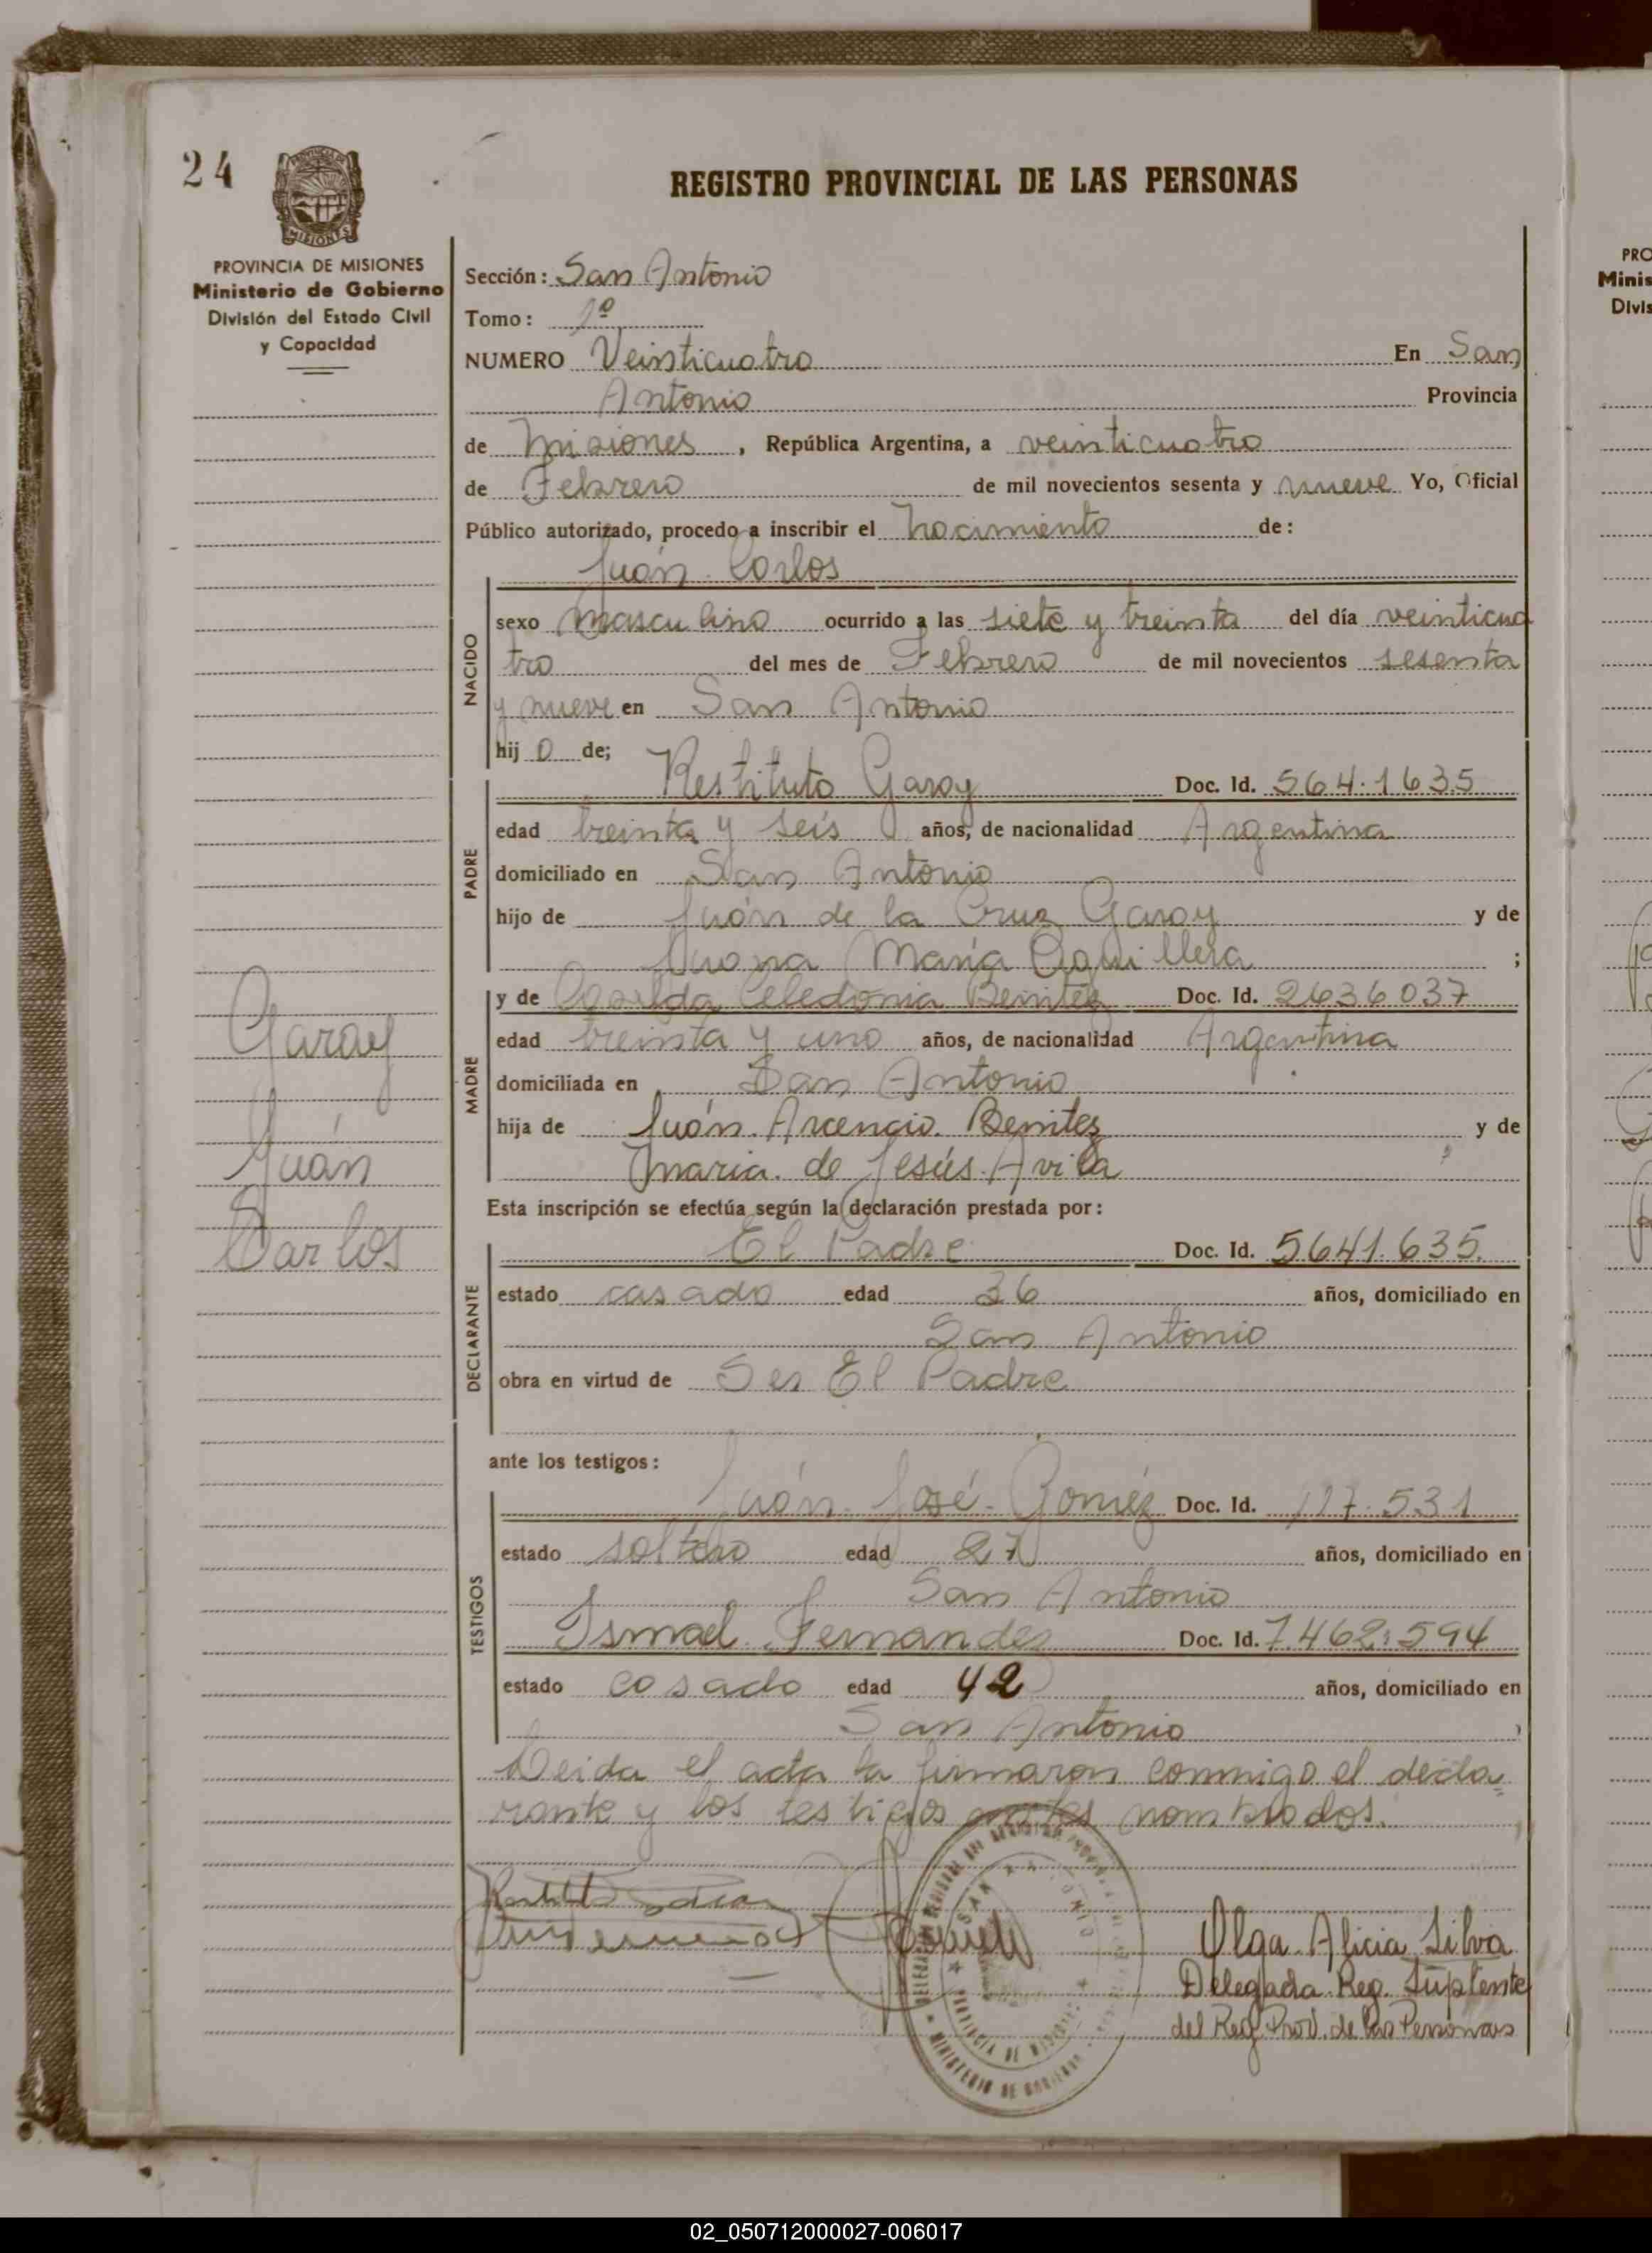 24
REGISTRO PROVINCIAL DE LAS PERSONAS
PROVINCIA DE MISIONES
Ministerio de Gobierno
División del Estado Civil
y Capacidad
Sección: San Antonio
Tomo: 1º
NUMERO Veinticuatro En San
Antonio Provincia
de Misiones, República Argentina, a veinticuatro
de Febrero de mil novecientos sesenta y nueve Yo, Oficial
Público autorizado, procedo a inscribir el nacimiento de:
Juán Carlos
NACIDO
sexo masculino ocurrido a las siete y treinta del día veinticua
tro del mes de Febrero de mil novecientos sesenta
y nueve en San Antonio
hij o de;
PADRE
Restituto Garay Doc. Id. 564.1635
edad treinta y seis años, de nacionalidad Argentina
domiciliado en San Antonio
hijo de Juán de la Cruz Garay y de
Juana María Aquillera ;
MADRE
y de Casilda Celedonia Benitez Doc. Id. 2636037
edad treinta y uno años, de nacionalidad Argentina
domiciliada en San Antonio
hija de Juán. Arcencio. Benitez y de
Maria. de Jesús. Avila
Garay
Juán
Carlos
Esta inscripción se efectúa según la declaración prestada por:
DECLARANTE
El Padre Doc. Id. 5641.635.
estado casado edad 36 años, domiciliado en
San Antonio
obra en virtud de Ser El Padre
ante los testigos:
TESTIGOS
Juán. José. Goméz Doc. Id. 117.531
estado soltero edad 27 años, domiciliado en
San Antonio
Ismael. Fernandez Doc. Id. 7.462.594
estado casado edad 42 años, domiciliado en
San Antonio
Leida el acta la firmaron conmigo el decla=
rante y los testigos antes nombrados.
SAN ANTONIO
PROVINCIA DE MISIONES
MINISTERIO DE GOBIERNO
Olga. Alicia Silva
Delegada. Reg. Suplente
del Reg. Prov. de las Personas
PRO
Minis
Divis
02_050712000027-006017